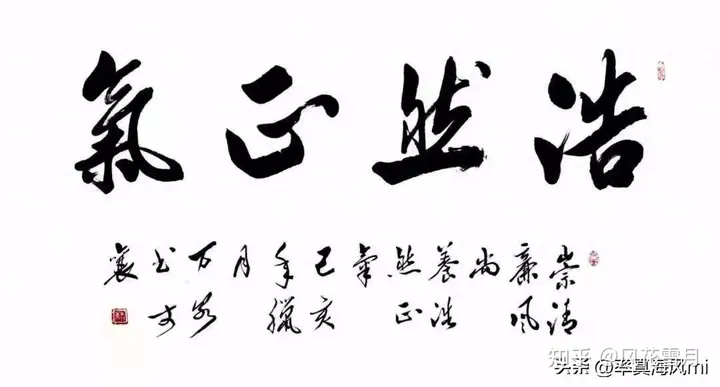 浩然正氣
崇清
廉風
尚
養浩
然正
氣
己亥
年臘
月
万
书于
襄
知乎 @风花雪月
头条 @率真海风mi